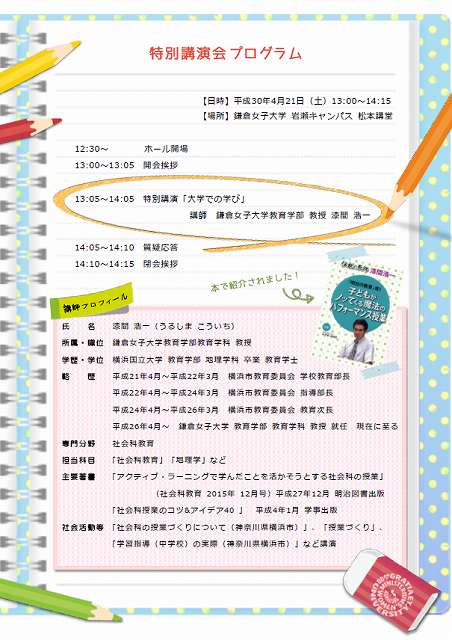 特別講演会プログラム
【日時】平成30年4月21日（土）13:00～14:15
【場所】鎌倉女子大学 岩瀬キャンパス 松本講堂
12:30～ ホール開場
13:00～13:05 開会挨拶
13:05～14:05 特別講演「大学での学び」
講師 鎌倉女子大学教育学部 教授 漆間 浩一
14:05～14:10 質疑応答
14:10～14:15 閉会挨拶
本で紹介されました！
漆間浩一
子どもが
ノッてくる魔法の
パフォーマンス授業
講師プロフィール
氏 名 漆間 浩一（うるしま こういち）
所属・職位 鎌倉女子大学教育学部教育学科 教授
学歴・学位 横浜国立大学 教育学部 地理学科 卒業 教育学士
略 歴 平成21年4月～平成22年3月 横浜市教育委員会 学校教育部長
平成22年4月～平成24年3月 横浜市教育委員会 指導部長
平成24年4月～平成26年3月 横浜市教育委員会 教育次長
平成26年4月～ 鎌倉女子大学 教育学部 教育学科 教授 就任 現在に至る
専門分野 社会科教育
担当科目 「社会科教育」「地理学」など
主要著書 「アクティブ・ラーニングで学んだことを活かそうとする社会科の授業」
（社会科教育 2015年 12月号）平成27年12月 明治図書出版
「社会科授業のコツ&アイデア40 」 平成4年1月 学事出版
社会活動等 「社会科の授業づくりについて（神奈川県横浜市）」、「授業づくり」、
「学習指導（中学校）の実際（神奈川県横浜市）」など講演